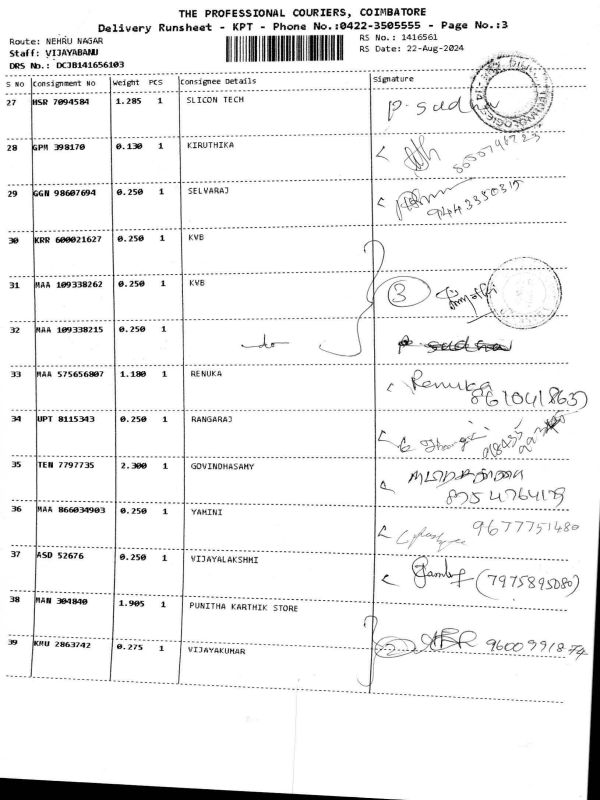 THE PROFESSIONAL COURIERS, COIMBATORE
Delivery Runsheet - KPT - Phone No.:0422-3505555 - Page No.:3
Route: NEHRU NAGAR
RS No.: 1416561
Staff: VIJAYABANU
RS Date: 22-Aug-2024
DRS No.: DCJB141656103
S No Consignment No Weight PCS Consignee Details Signature
27 HSR 7094584 1.285 1 SLICON TECH P. Sudha
28 GPM 398170 0.130 1 KIRUTHIKA
29 GGN 98607694 0.250 1 SELVARAJ 9443350315
30 KRR 600021627 0.250 1 KVB
31 MAA 109338262 0.250 1 KVB 3
32 MAA 109338215 0.250 1 do P Sudha
33 MAA 575656807 1.180 1 RENUKA Renuka
8610418637
34 UPT 8115343 0.250 1 RANGARAJ
35 TEN 7797735 2.300 1 GOVINDHASAMY
8754764179
36 MAA 866034903 0.250 1 YAMINI 9677751480
37 ASD 52676 0.250 1 VIJAYALAKSHMI (7975895080)
38 MAN 304840 1.905 1 PUNITHA KARTHIK STORE
39 KMU 2863742 0.275 1 VIJAYAKUMAR 9600991874